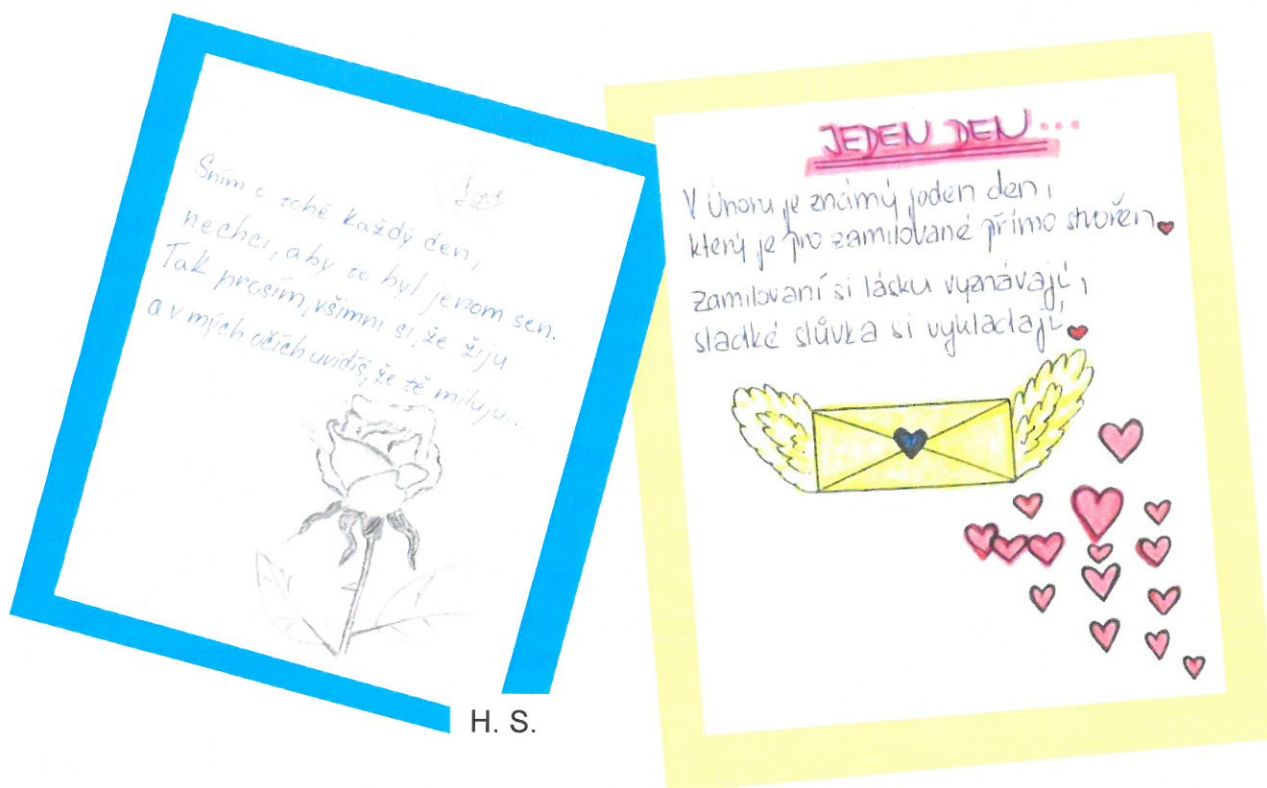 Love
Sním o tobě každý den,
nechci, aby to byl jenom sen.
Tak prosím, všimni si, že žiju
a v mých očích uvidíš, že tě miluju...
H. S.
JEDEN DEN...
V únoru je známý jeden den,
který je pro zamilované přímo stvořen
zamilovaní si lásku vyznávají,
sladké slůvka si vykládají